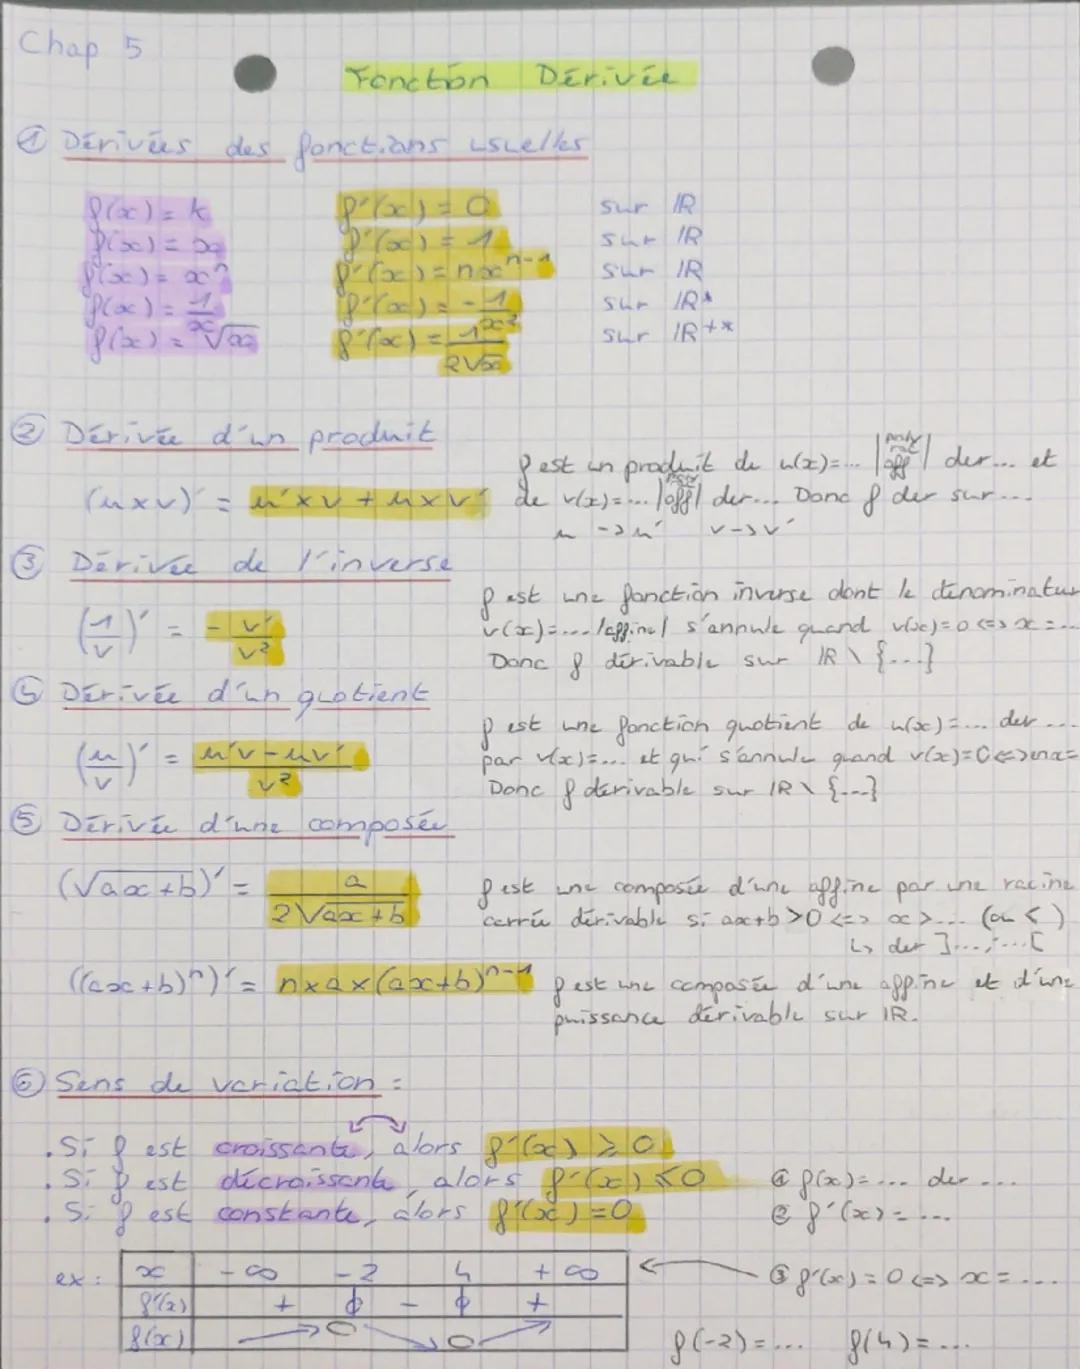 Chap 5
Fonction Dérivée
① Dérivées des fonctions usuelles
f(x) = k f'(x) = 0 sur IR
f(x) = x f'(x) = 1 sur IR
f(x) = xⁿ f'(x) = nxⁿ⁻¹ sur IR
f(x) = 1/x f'(x) = - 1/x² sur IR*
f(x) = √x f'(x) = 1/2√x sur IR+*
② Dérivée d'un produit
f est un produit de u(x)=... |poly aff| der... et
(u x v)' = u' x v + u x v' de v(x)=... |poly aff| der... Donc f der sur...
u -> u' v -> v'
③ Dérivée de l'inverse
f est une fonction inverse dont le dénominateur
(1/v)' = - v'/v² v(x)=... |affine| s'annule quand v(x)=0 <=> x=...
Donc f dérivable sur IR \ {...}
④ Dérivée d'un quotient
f est une fonction quotient de u(x)=... der ...
(u/v)' = u'v - uv'/v² par v(x)=... et qui s'annule quand v(x)=0 <=> en x=
Donc f dérivable sur IR \ {...}
⑤ Dérivée d'une composée
(√ax+b)' = a/2√ax+b f est une composée d'une affine par une racine
carrée dérivable si ax+b>0 <=> x>... (ou <)
↳ der ]...;...[
((ax+b)ⁿ)' = n x a x (ax+b)ⁿ⁻¹ f est une composée d'une affine et d'une
puissance dérivable sur IR.
⑥ Sens de variation :
. Si f est croissante, alors f'(x) ≥ 0
. Si f est décroissante, alors f'(x) ≤ 0 ① f(x)=... der ...
. Si f est constante, alors f'(x) = 0 ② f'(x)=...
ex : x -∞ -2 4 +∞ ③ f'(x) = 0 <=> x=...
f'(x) + 0 - 0 +
f(x) 0 0 f(-2)=... f(4)=...